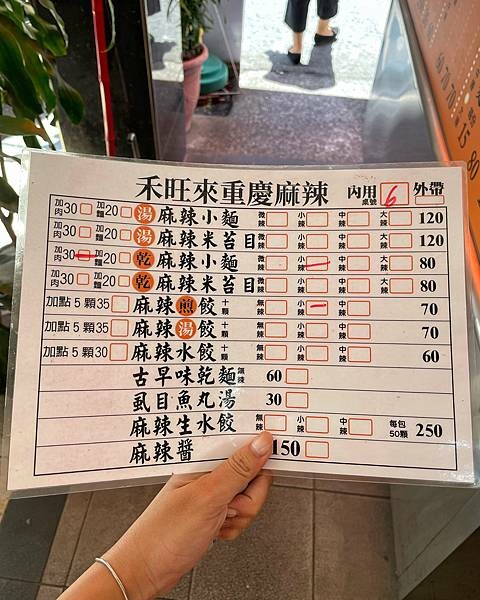 禾旺來重慶麻辣 內用桌號 6 外帶
加肉30 加麵20 湯 麻辣小麵 微辣 小辣 中辣 大辣 120
加肉30 加麵20 湯 麻辣米苔目 微辣 小辣 中辣 大辣 120
加肉30 加麵20 乾 麻辣小麵 微辣 小辣 中辣 大辣 80
加肉30 加麵20 乾 麻辣米苔目 微辣 小辣 中辣 大辣 80
加點5顆35 麻辣煎餃十顆 無辣 小辣 中辣 70
加點5顆35 麻辣湯餃十顆 無辣 小辣 中辣 70
加點5顆30 麻辣水餃十顆 無辣 小辣 中辣 60
古早味乾麵無辣 60
虱目魚丸湯 30
麻辣生水餃 無辣 小辣 中辣 每包50顆 250
麻辣醬 150